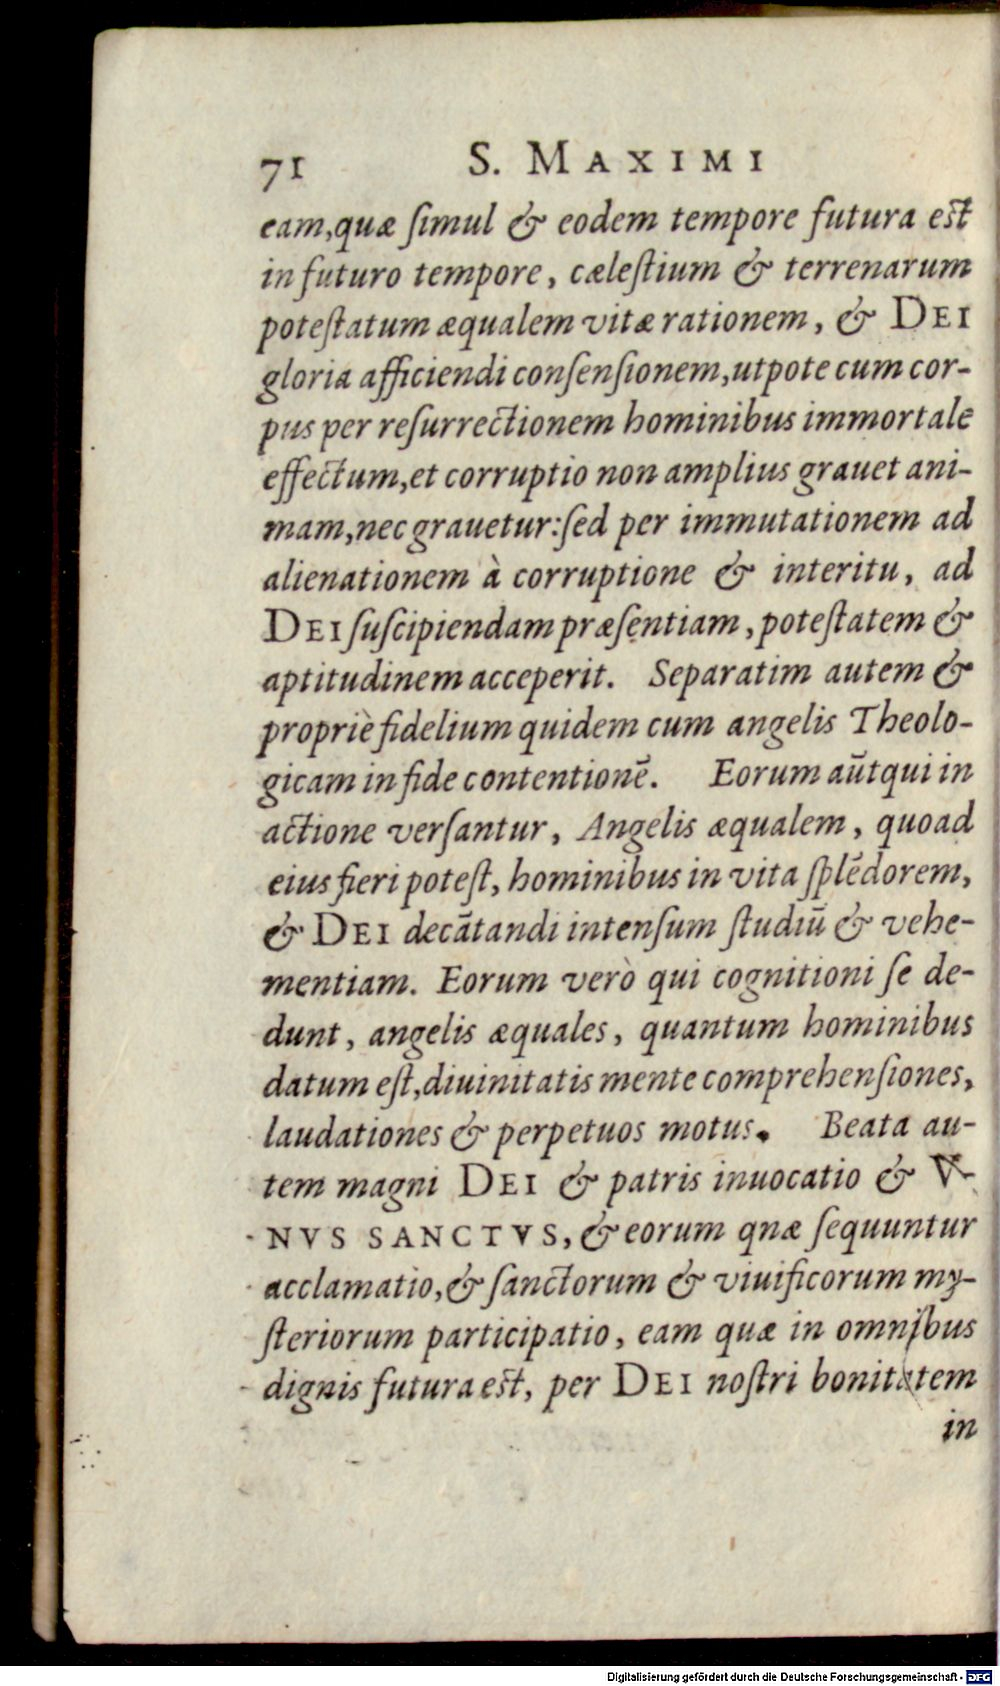 71 S. MAXIMI
eam,quæ ſimul & eodem tempore futura eſt
in futuro tempore, cæleſtium & terrenarum
poteſtatum æqualem vitæ rationem, & DEI
gloria afficiendi conſenſionem,utpote cum cor-
pus per reſurrectionem hominibus immortale
effectum,et corruptio non amplius grauet ani-
mam,nec grauetur:ſed per immutationem ad
alienationem à corruptione & interitu, ad
DEI ſuſcipiendam præſentiam, poteſtatem &
aptitudinem acceperit. Separatim autem &
propriè fidelium quidem cum angelis Theolo-
gicam in fide contentionē. Eorum aūt qui in
actione verſantur, Angelis æqualem, quoad
eius fieri poteſt, hominibus in vita ſplēdorem,
& DEI decātandi intenſum ſtudiū & vehe-
mentiam. Eorum verò qui cognitioni ſe de-
dunt, angelis æquales, quantum hominibus
datum eſt,diuinitatis mente comprehenſiones,
laudationes & perpetuos motus. Beata au-
tem magni DEI & patris inuocatio & V-
NVS SANCTVS, & eorum qnæ ſequuntur
acclamatio,& ſanctorum & viuificorum my-
ſteriorum participatio, eam quæ in omnibus
dignis futura eſt, per DEI noſtri bonitatem
in
Digitalisierung gefördert durch die Deutsche Forschungsgemeinschaft - DFG